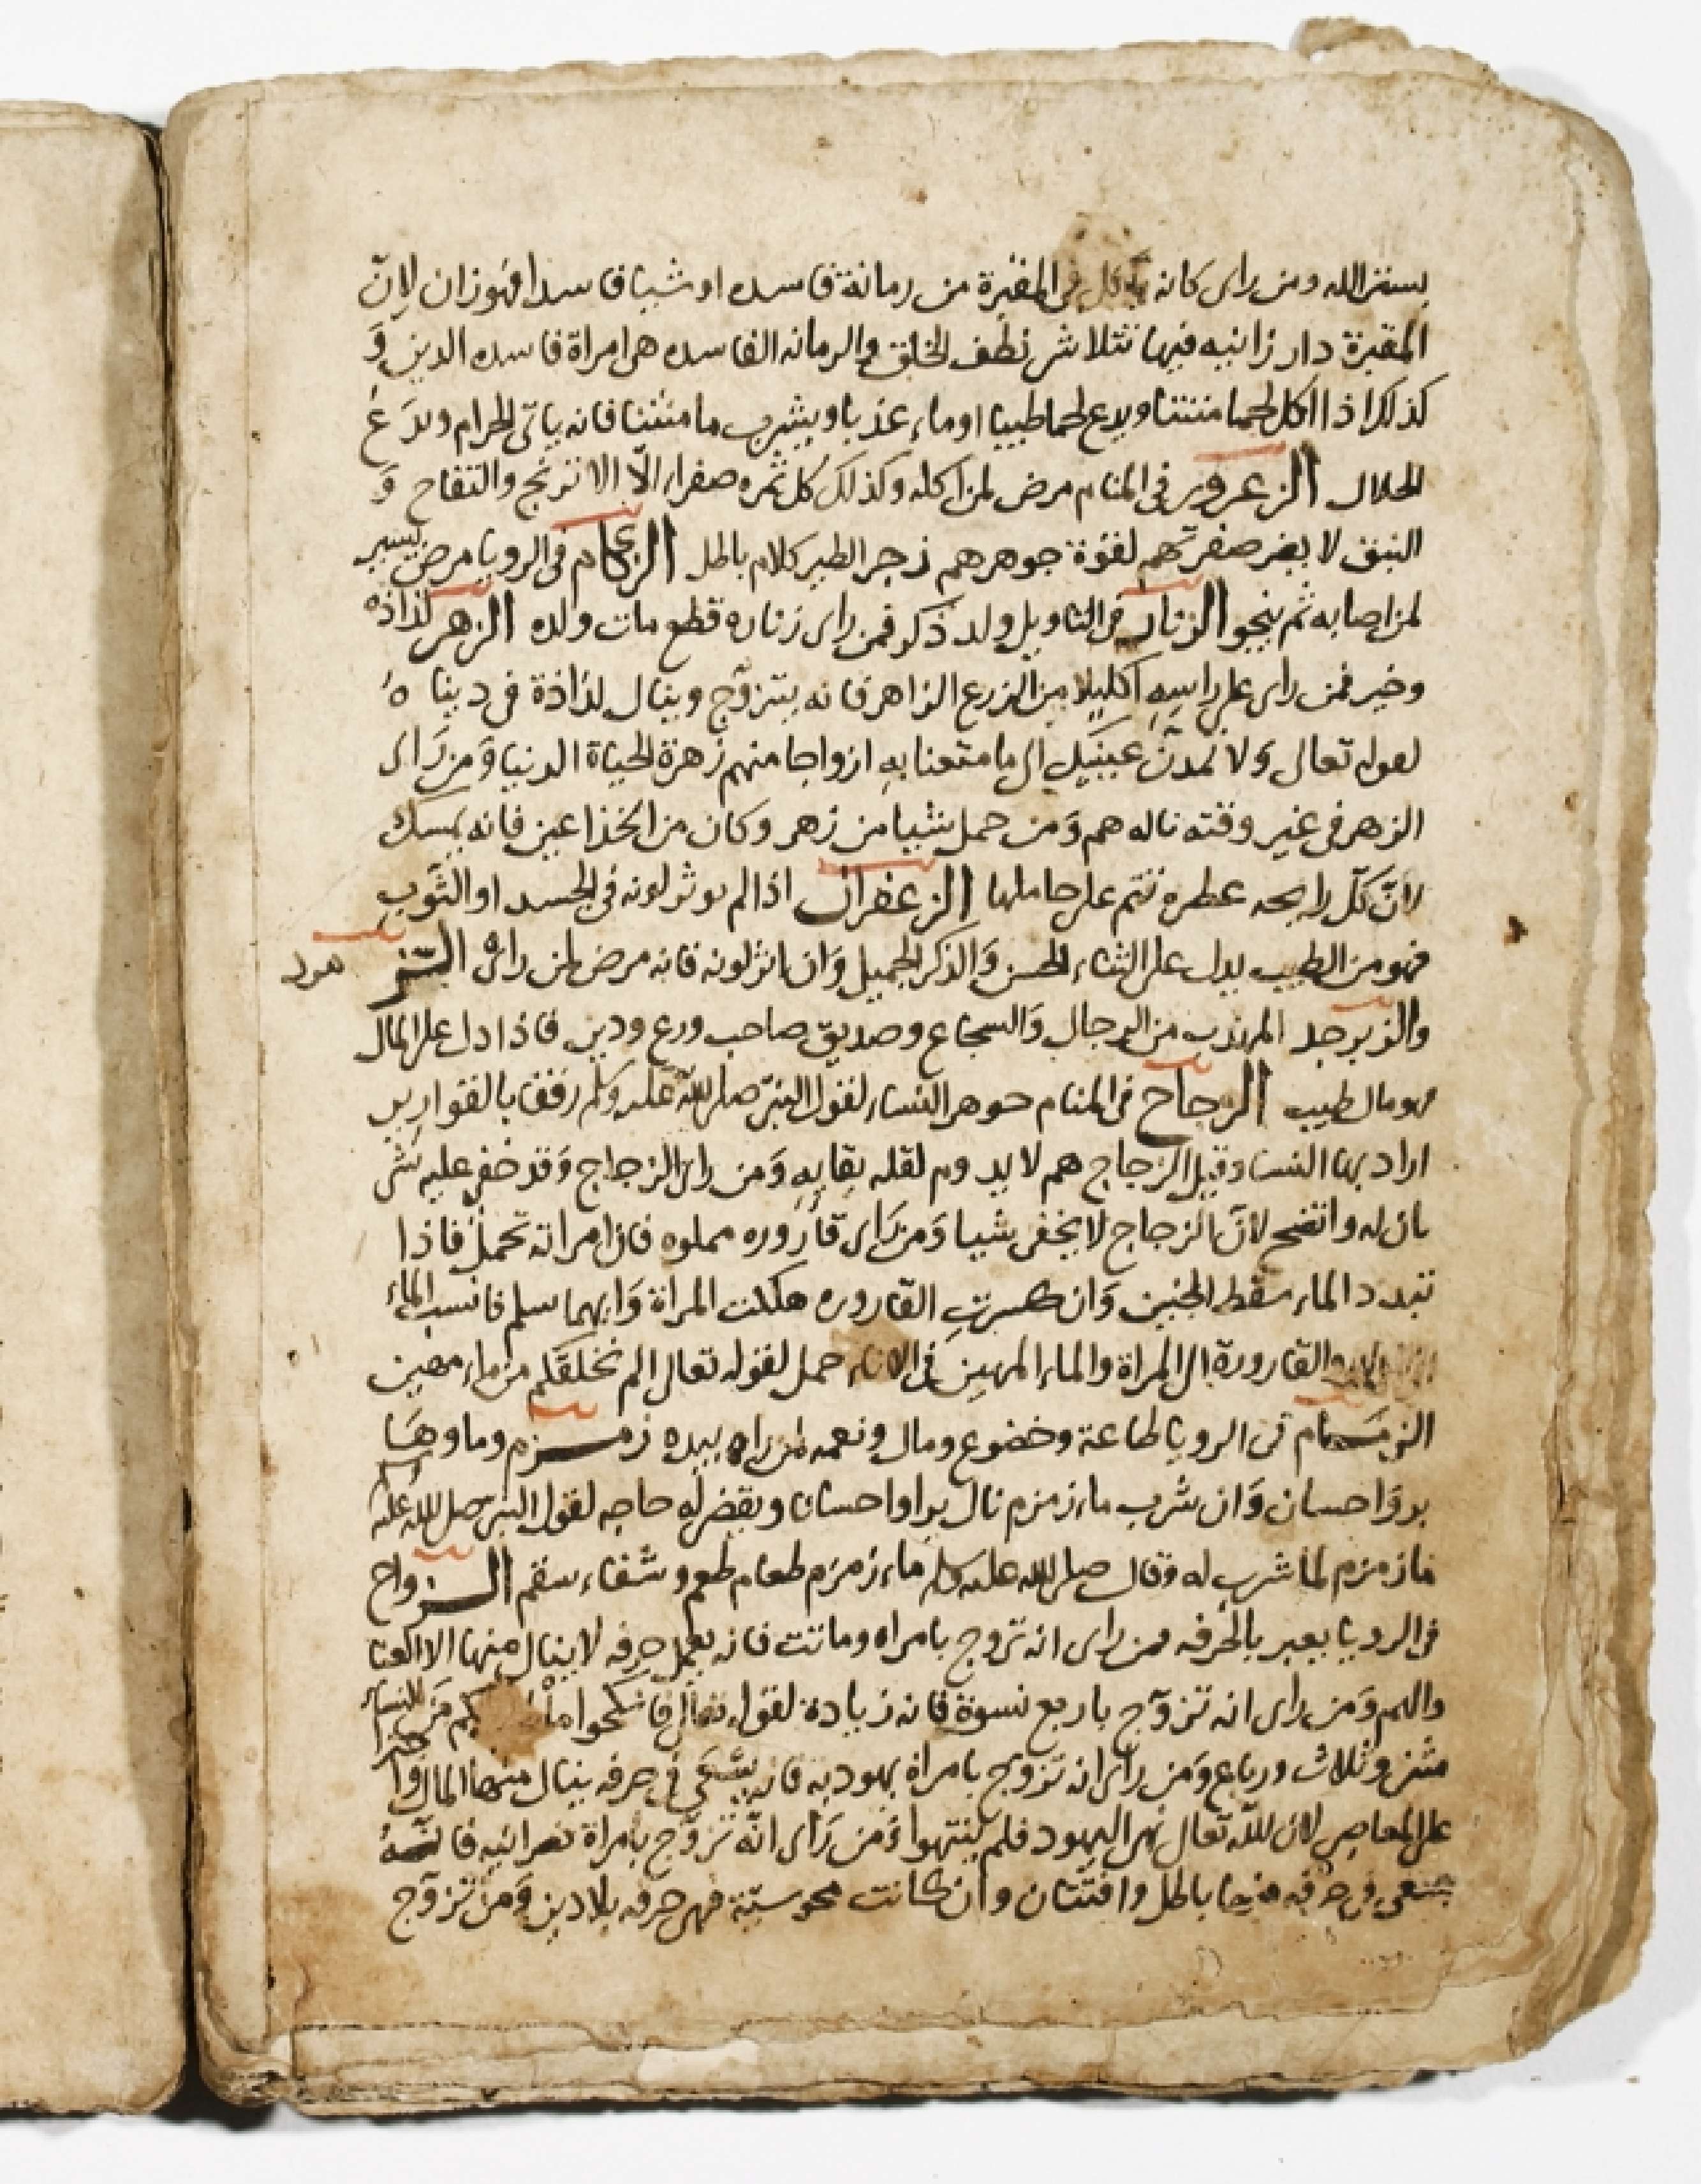 بستر الله ومن راى كانه ياكل فى المقبرة من رمانة فاسده او شيا فاسدا فهو زان لان
المقبرة دار زانيه فيها تتلاشى نطف الخلق والرمانه الفاسده هى امراة فاسده الدين و
كذلك اذا اكل لحما منتنا ويدع لحما طيبا او ماء عذبا ويشرب ما منتنا فانه ياتى الحرام ويدع
الحلال الزعرور فى المنام مرض لمن اكله وكذلك كل ثمره صفرا الّا الاترنج والتفاح و
النبق لا يضر صفرتهم لقوة جوهرهم زجر الطير كلام باطل الزكام فى الرويا مرض يسير
لمن اصابه ثم ينجو الزنار فى التاويل ولد ذكر فمن راى زناره قطع مات ولده الزهر لذاذه
وخير فمن راى على راسه اكليلا من الزرع الزاهر فانه يتزوّج وينال لذاذة فى دينا ه
لقوله تعالى ولا تمدنّ عينيك الى ما متعنا به ازواجا منهم زهرة الحياة الدنيا ومن راى
الزهر فى غير وقته ناله هم ومن حمل شيا من زهر وكان من الخذاعين فانه يمسك
لانّ كلّ رايحه عطرة تنم على حاملها الزعفران اذا لم يوثر لونه فى الجسد او الثوب
فهو من الطيب يدل على الثناء الحسن والذكر الجميل وان اثر لونه فانه مرض لمن راى
والزبرجد المهذب من الرجال والشجاع وصديق صاحب ورع ودين فاذا دل على المال
فهو مال طيب الزجاج فى المنام جوهر النساء لقول النبىّ صلى الله عليه وسلم رفقا بالقوارير
اراد بها النسا وقيل الزجاج هم لا يدوم لقله بقايه ومن راى الزجاج وقد خفى عليه شى
بان له واتضح لانّ الزجاج لا يخفى شيا ومن راى قاروره مملوه فان امراته تحمل فاذا
تبدد الماء سقط الجنين وان كسرت القاروره هلكت المراة وايهما سلم فانسب الماء
والقارورة الى المراة والماء المهين فى الاناء حمل لقوله تعالى الم نخلقكم من ماء مهين
الزمام فى الرويا طاعة وخضوع ومال ونعمه لمن راه بيده زمزم وماوها
بر واحسان وان شرب ماء زمزم نال برا واحسانا ويقضى له حاجه لقول النبى صلى الله عليه
ما زمزم لما شرب له وقال صلى الله عليه وسلم ماء زمزم طعام طعم وشفاء سقم الزواج
فى الرويا يعبر بالحرفه فمن راى انه تزوج بامراه وماتت فانه يعمل حرفه لا ينال منها الا العنا
والهم ومن راى انه تزوّج باربع نسوة فانه زيادة لقوله تعالى فانكحوا ما لكم من النساء
مثنى وثلاث ورباع ومن راى انه تزوج بامراة يهوديه فانه يسعى فى حرفه ينال منها المال
على المعاصى لان الله تعالى نهى اليهود فلم ينتهوا ومن راى انّه تزوّج بامراة نصرانيه فانه
يسعى فى حرفه فيها باطل وافتتان وان كانت مجوسيّة فهى حرفه بلا دين ومن تزوّج